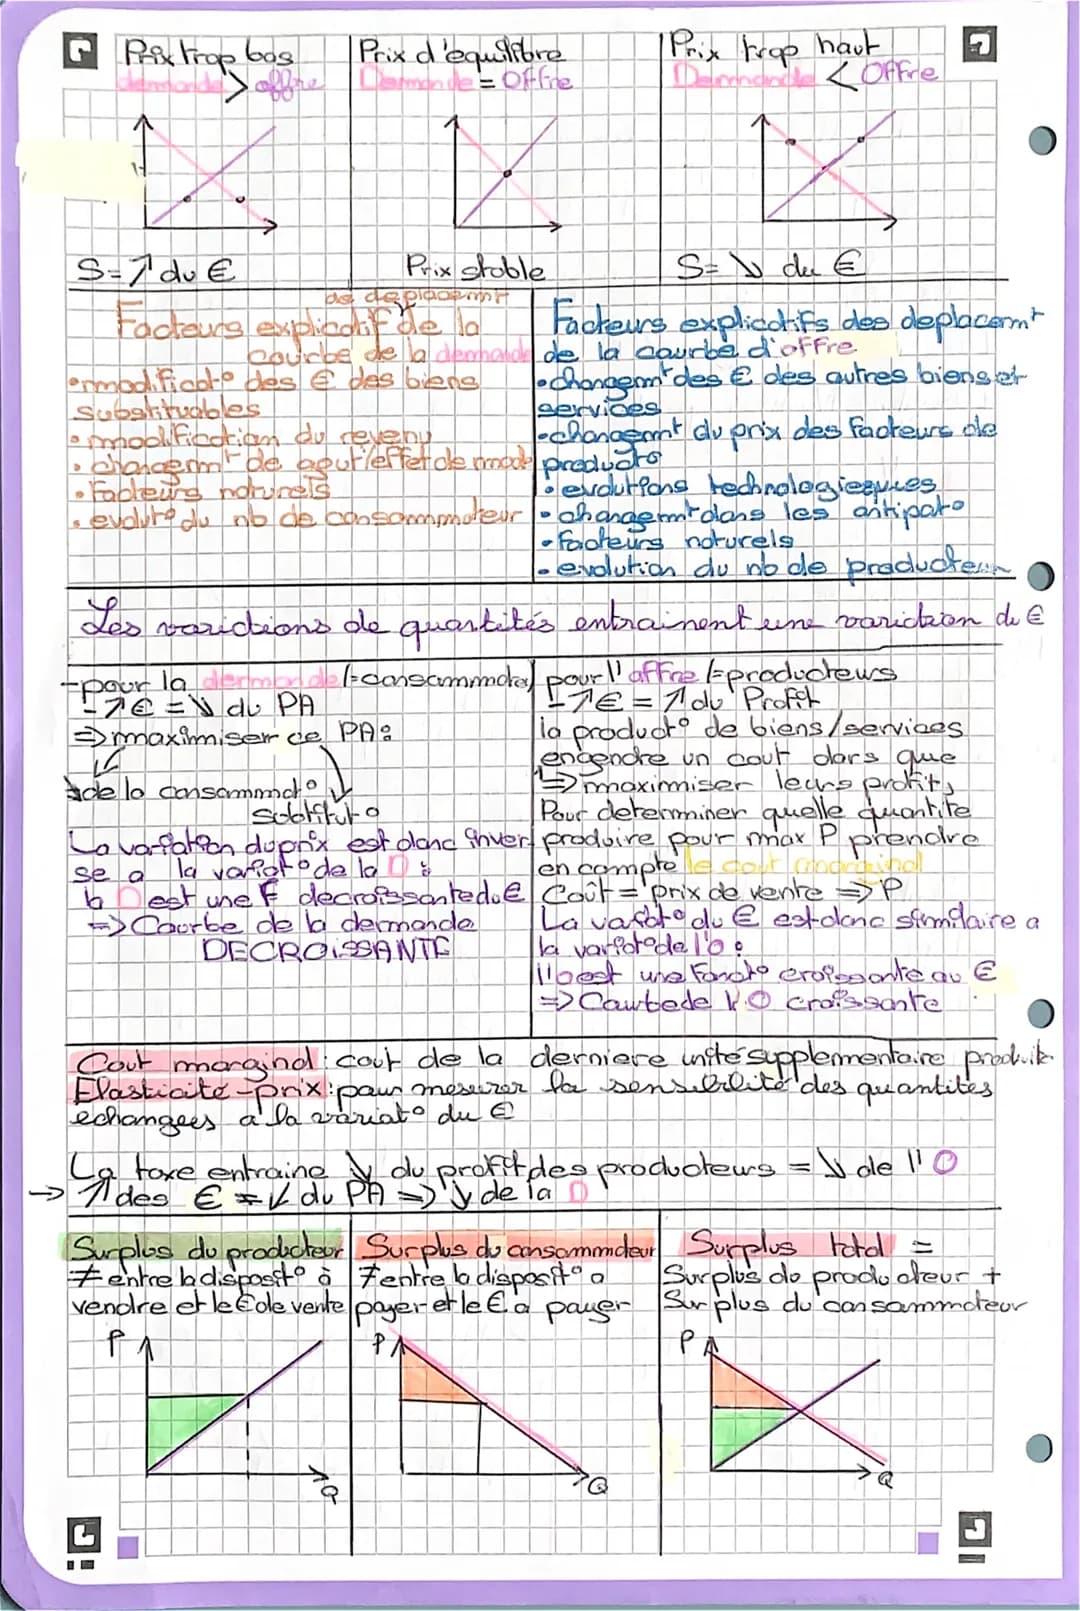 Prix trop bas
demande > offre
Prix d'équilibre
Demande = Offre
Prix trop haut
Demande < Offre
S= ↗ du €
Prix stable
S= ↘ du €
de deplacemt
Facteurs explicatif de la
courbe de la demande
• modificat° des € des biens
substituables
• modification du revenu
• changemt de gout/effet de mode
• Facteurs naturels
• evolut° du nb de consommateur
Facteurs explicatifs des deplacemt
de la courbe d'offre
• changemt des € des autres biens et
services
• changemt du prix des facteurs de
product°
• evolutions technologiesques
• changemt dans les antipat°
• facteurs naturels
• evolution du nb de producteur
Les variations de quantités entrainent une variation du €
- pour la demande (=consommate)
- ↗ € = ↘ du PA
⇒ maximiser ce PA:
↘ de la consommat°
subtitut°
La variation du prix est donc inver
se a la variat° de la D :
la D est une F decroissante du €
⇒ Courbe de la demande
DECROISSANTE
pour l'offre (=producteurs
- ↗ € = ↗ du Profit
la product° de biens/services
engendre un cout alors que
⇒ maximiser leurs profits
Pour determiner quelle quantite
produire pour max P prendre
en compte le cout marginal
Coût = prix de vente ⇒ P
La variat° du € est donc similaire a
la variat° de l'O :
l'O est une fonct° croissante au €
⇒ Courbe de l'O croissante
Cout marginal : cout de la derniere unité supplementaire produite
Elasticité-prix : pour mesurer la sensibilité des quantités
echangees a la variat° du €
La taxe entraine ↘ du profit des producteurs = ↘ de l'O
→ ↗ des € = ↙ du PA ⇒ ↘ de la D
Surplus du producteur
≠ entre la disposit° à
vendre et le € de vente
P
Q
Surplus du consommateur
≠ entre la disposit° a
payer et le € a payer
P
Q
Surplus total =
Surplus du producteur +
Surplus du consommateur
P
Q